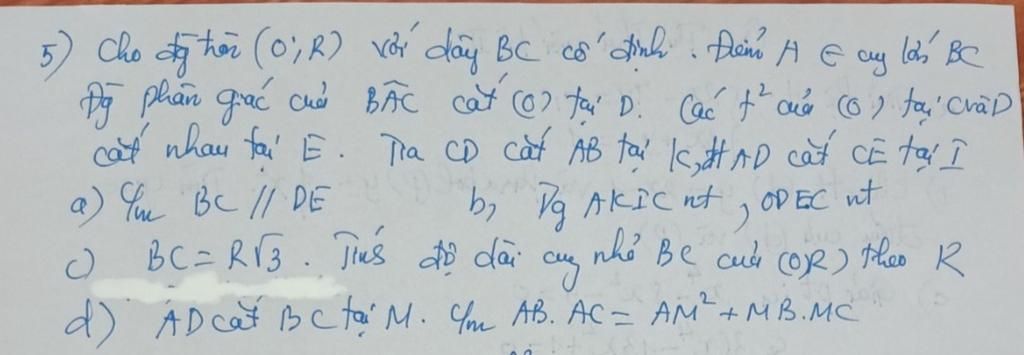 5) Cho đg tròn (O; R) với dây BC cố định. Điểm A ∈ cg lớn BC
Đg phân giác của BÂC cắt (O) tại D. Các t² của (O) tại C và D
cắt nhau tại E. Tia CD cắt AB tại K, đt AD cắt CE tại I
a) C/m BC // DE b, Tg AKIC nt, ODEC nt
c) BC = R√3. Tính độ dài cung nhỏ BC của (O,R) theo R
d) AD cắt BC tại M. C/m AB. AC = AM² + MB.MC